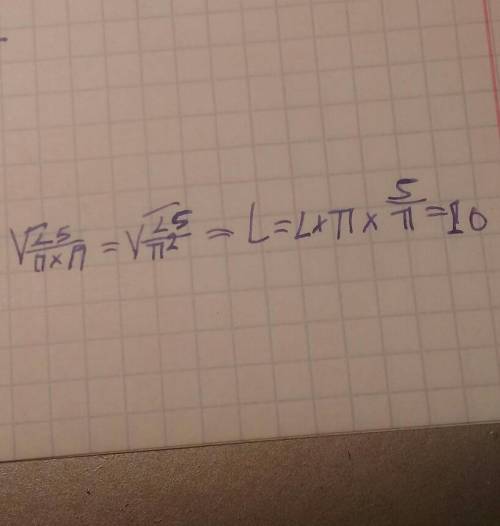 √25/π×π = √25/π² = L = 2×π× 5/π = 10